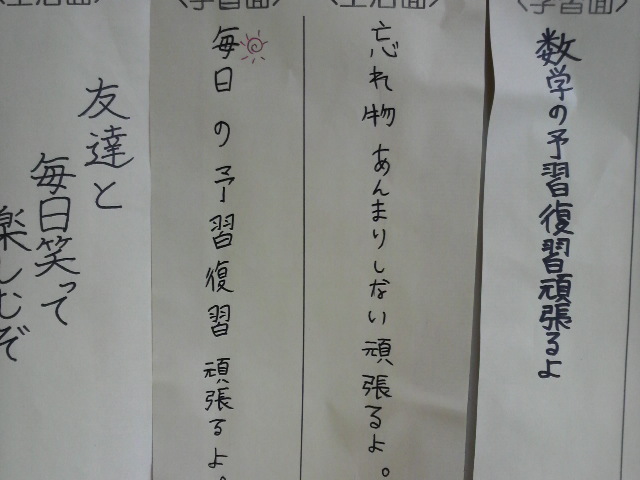 (学習面)
数学の予習復習頑張るよ
(生活面)
忘れ物あんまりしない頑張るよ。
(学習面)
毎日の予習復習頑張るよ。
(生活面)
友達と
毎日笑って
楽しむぞ